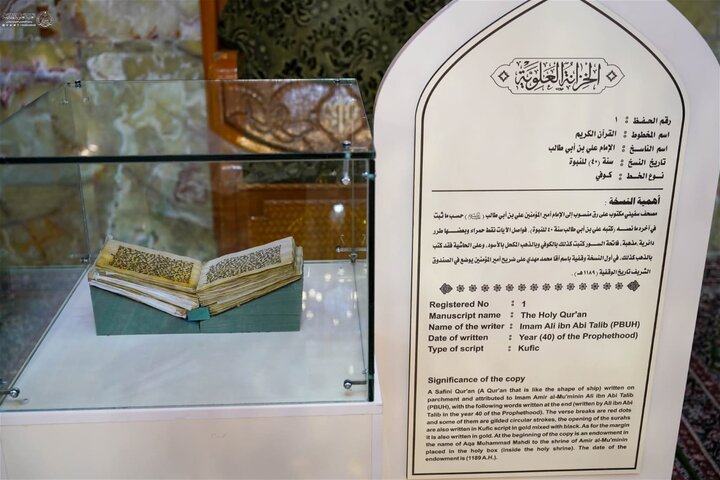 الخزانة العلوية
رقم الحفظ : ١
اسم المخطوط : القرآن الكريم
اسم الناسخ : الإمام علي بن أبي طالب
تاريخ النسخ : سنة (٤٠) للنبوة
نوع الخط : كوفي
أهمية النسخة :
مصحف سفيني مكتوب على رق منسوب إلى الإمام أمير المؤمنين علي بن أبي طالب حسب ما ثبت
في آخره ما نصه (كتبه علي بن أبي طالب سنة ٤٠ للنبوة). فواصل الآيات نقط حمراء وبعضها طرر
دائرية مذهبة. فاتحة السور كتبت كذلك بالكوفي وبالذهب المكحل بالأسود. وعلى الحاشية فقد كتب
بالذهب كذلك. في أول النسخة وقفية باسم آقا محمد مهدي على ضريح أمير المؤمنين يوضع في الصندوق
الشريف تاريخ الوقفية (١١٨٩هـ).
Registered No : 1
Manuscript name : The Holy Qur'an
Name of the writer : Imam Ali ibn Abi Talib (PBUH)
Date of written : Year (40) of the Prophethood)
Type of script : Kufic
Significance of the copy
A Safini Qur'an (A Qur'an that is like the shape of ship) written on
parchment and attributed to Imam Amir al-Mu'minin Ali ibn Abi Talib
(PBUH), with the following words written at the end (written by Ali ibn Abi
Talib in the year 40 of the Prophethood). The verse breaks are red dots
and some of them are gilded circular strokes, the opening of the surahs
are also written in Kufic script in gold mixed with black. As for the margin
it is also written in gold. At the beginning of the copy is an endowment in
the name of Aqa Muhammad Mahdi to the shrine of Amir al-Mu'minin
placed in the holy box (inside the holy shrine). The date of the
endowment is (1189 A.H.).